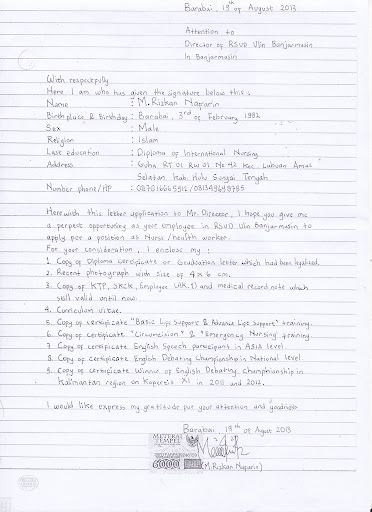 Barabai, 19th of August 2013
Attention to
Director of RSUD Ulin Banjarmasin
In Banjarmasin
With respectfully
Here I am who has given the signature below this :
Name : M. Riskan Naparin
Birthplace & Birthday : Barabai, 3rd of February 1992
Sex : Male
Religion : Islam
Last education : Diploma of International Nursing
Address : Guha RT 01 RW 01 No 42 Kec Labuan Amas
Selatan Kab. Hulu Sungai Tengah
Number phone/HP : 087816665912/081349693785
Herewith this letter application to Mr. Director, I hope you give me
a perfect opportunity as your employee in RSUD Ulin Banjarmasin to
apply for a position as Nurse / health worker.
For your consideration, I enclose my :
1. Copy of Diploma certificate or Graduation letter which had been legalized.
2. Recent photograph with size of 4 x 6 cm.
3. Copy of KTP, SKCK, Employee (AK.1) and medical record note which
still valid until now.
4. Curriculum vitae.
5. Copy of certificate "Basic Life Support & Advance Life Support" training.
6. Copy of certificate "Circumcision" & "Emergency Nursing" training.
7. Copy of certificate English Speech participant in ASIA level.
8. Copy of certificate English Debating Championship in National level.
9. Copy of certificate Winner of English Debating Championship in
Kalimantan region on Kopertis XI in 2011 and 2012.
I would like express my gratitude for your attention and goodness
Barabai, 19th of Agust 2013
METERAI
TEMPEL
6000
(M. Riskan Naparin)